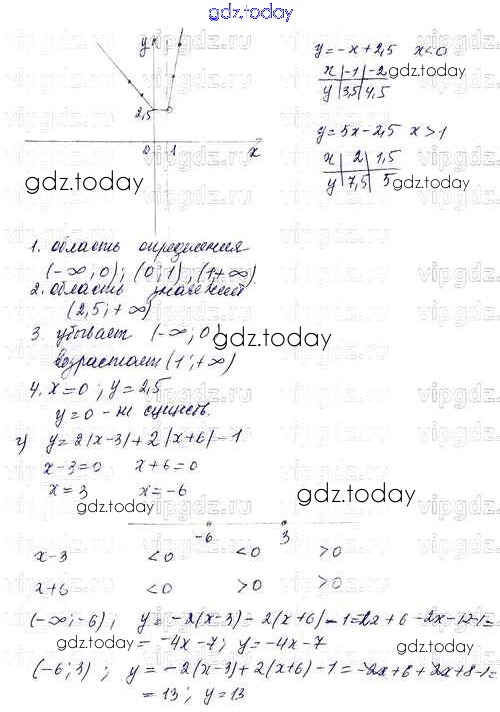 gdz.today
y
2,5
0 1 x
y=-x+2,5 x<0
x | -1 | -2
y | 3,5 | 4,5
gdz.today
y=5x-2,5 x>1
x | 2 | 1,5
y | 7,5 | 5
gdz.today
gdz.today
1. область определения
(-∞; 0); (0; 1), (1+∞)
2. область значений
(2,5; +∞)
3. убывает (-∞; 0)
gdz.today
возрастает (1; +∞)
4. x=0; y=2,5
y=0 - не существ.
г) y=2|x-3|+2|x+6|-1
x-3=0 x+6=0
x=3 x=-6
gdz.today
gdz.today
-6 3
x-3 <0 <0 >0
x+6 <0 >0 >0
(-∞; -6); y=-2(x-3)-2(x+6)-1=-2x+6-2x-12-1=
gdz.today
=-4x-7; y=-4x-7
gdz.today
(-6; 3); y=-2(x-3)+2(x+6)-1=-2x+6+2x+8-1=
=13; y=13
gdz.today
vipgdz.ru